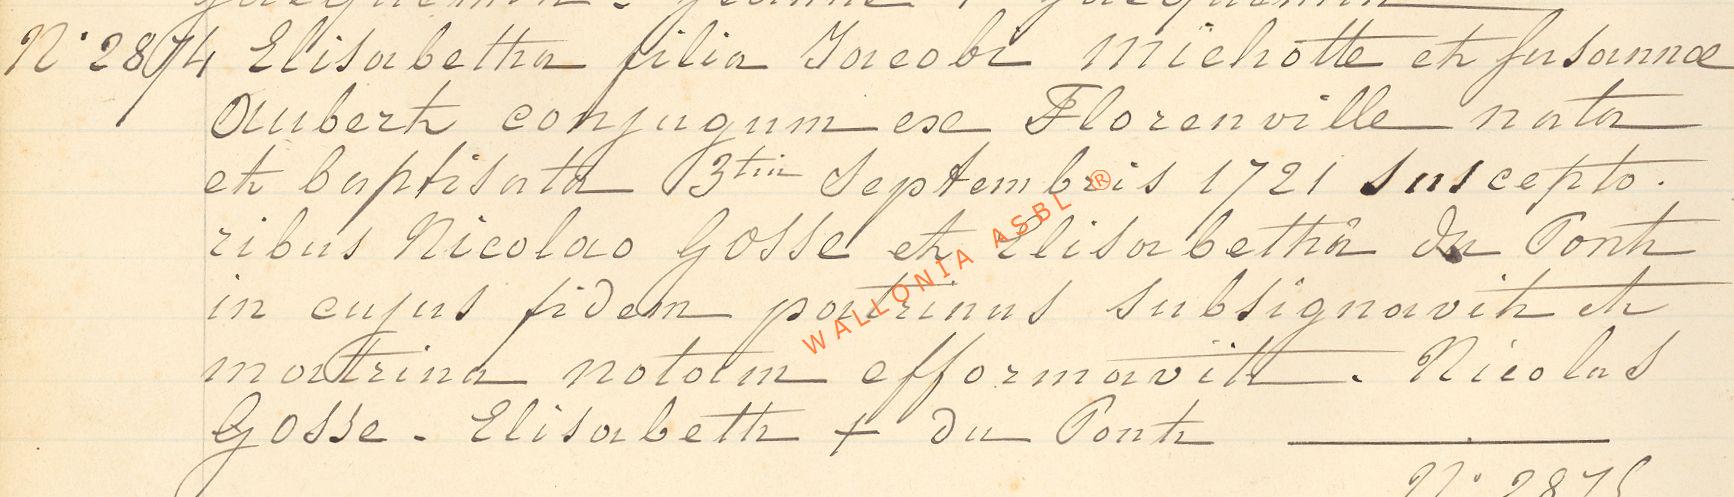 jacquemin. jeanne + jacquemin
N° 2874 Elisabetha filia Jacobi Michotte et susannæ
Aubert conjugum ex Florenville nata
et baptisata 3tia Septembris 1721 suscepto.
ribus Nicolao Gosse et Elisabethâ du Pont
in cujus fidem patrinus subsignavit et
matrina notam efformavit. Nicolas
Gosse. Elisabeth + du Pont
N° 2875
WALLONIA ASBL ®